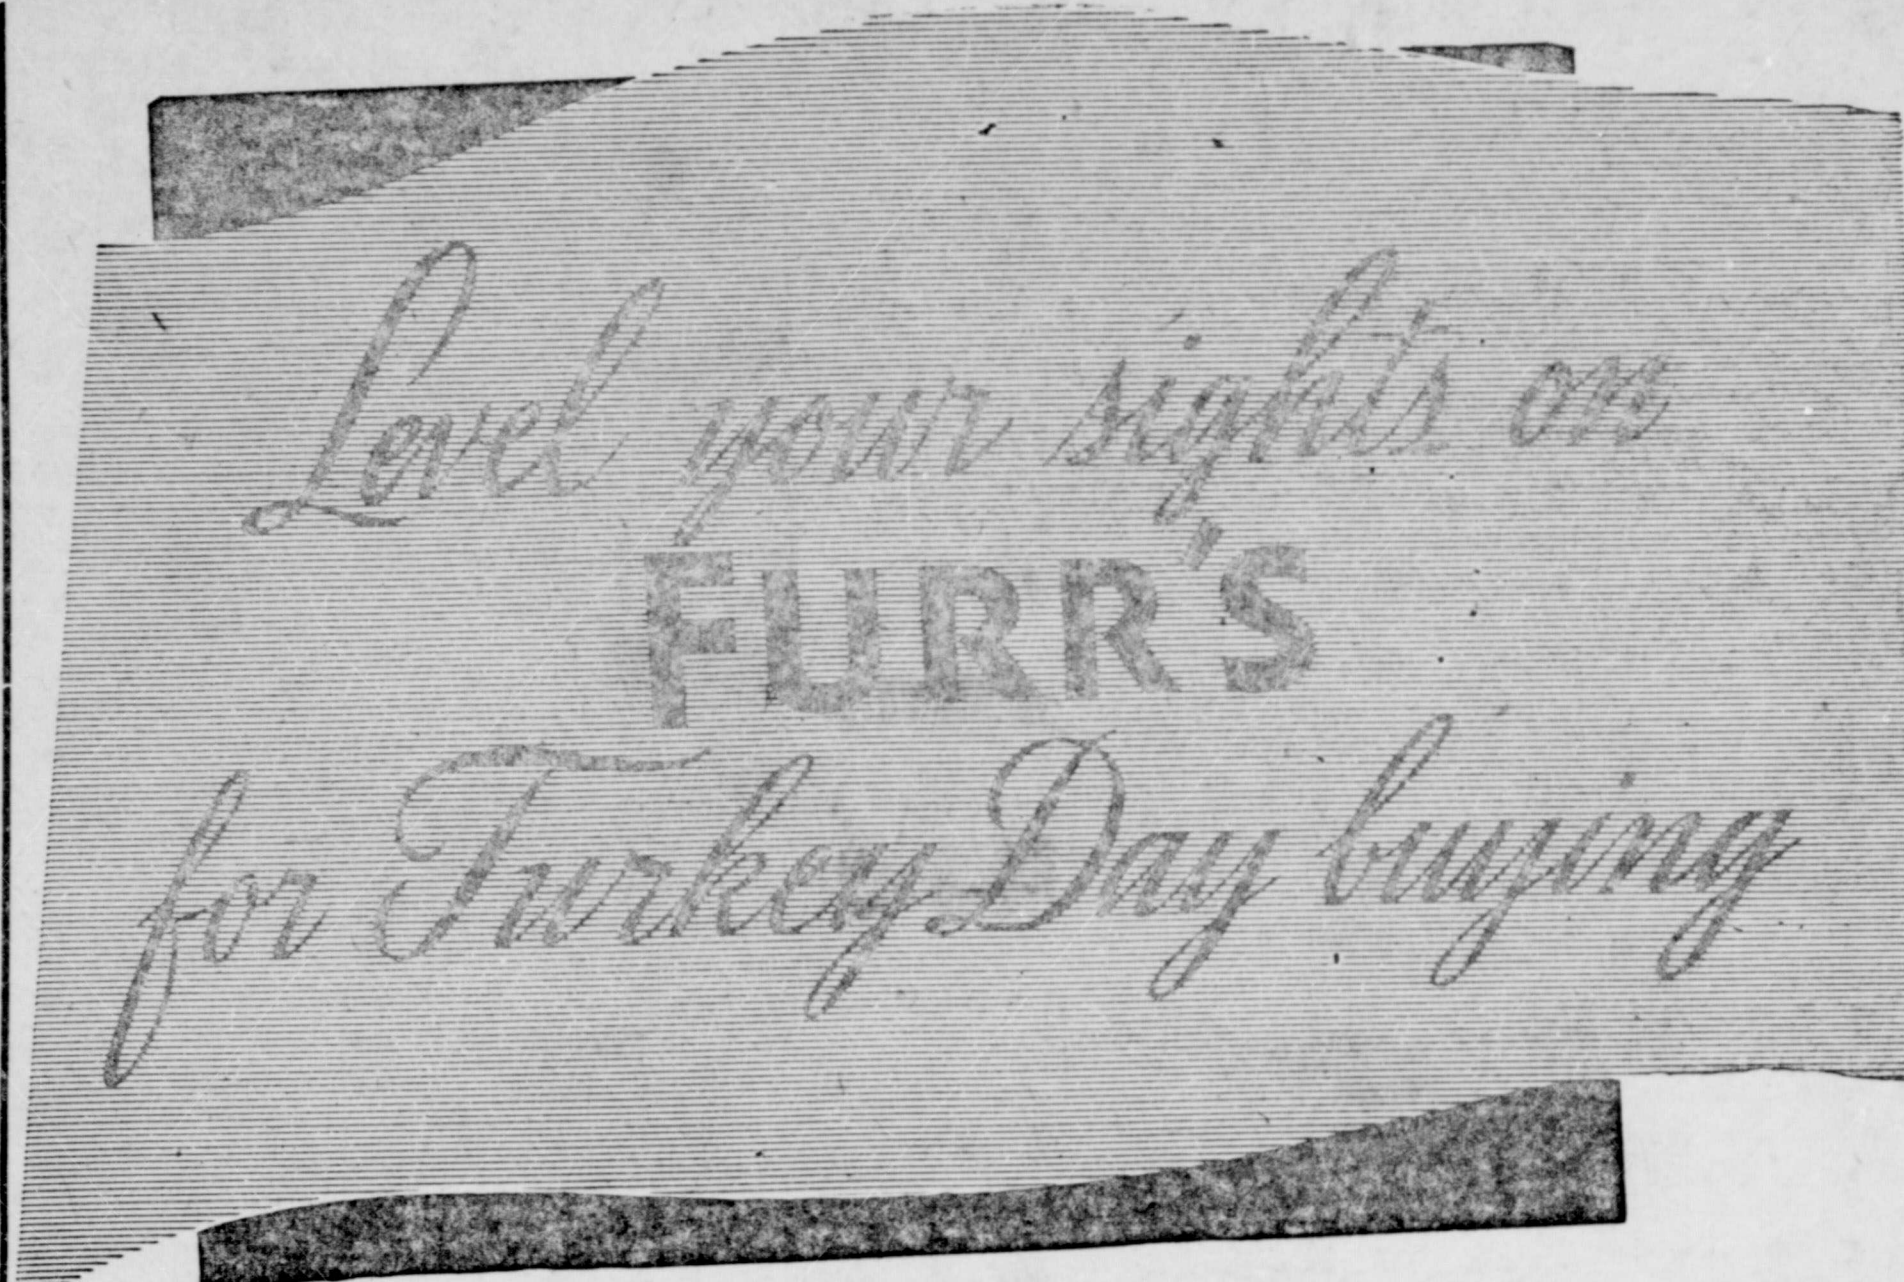 Level your sights on
FURR'S
for Turkey Day buying